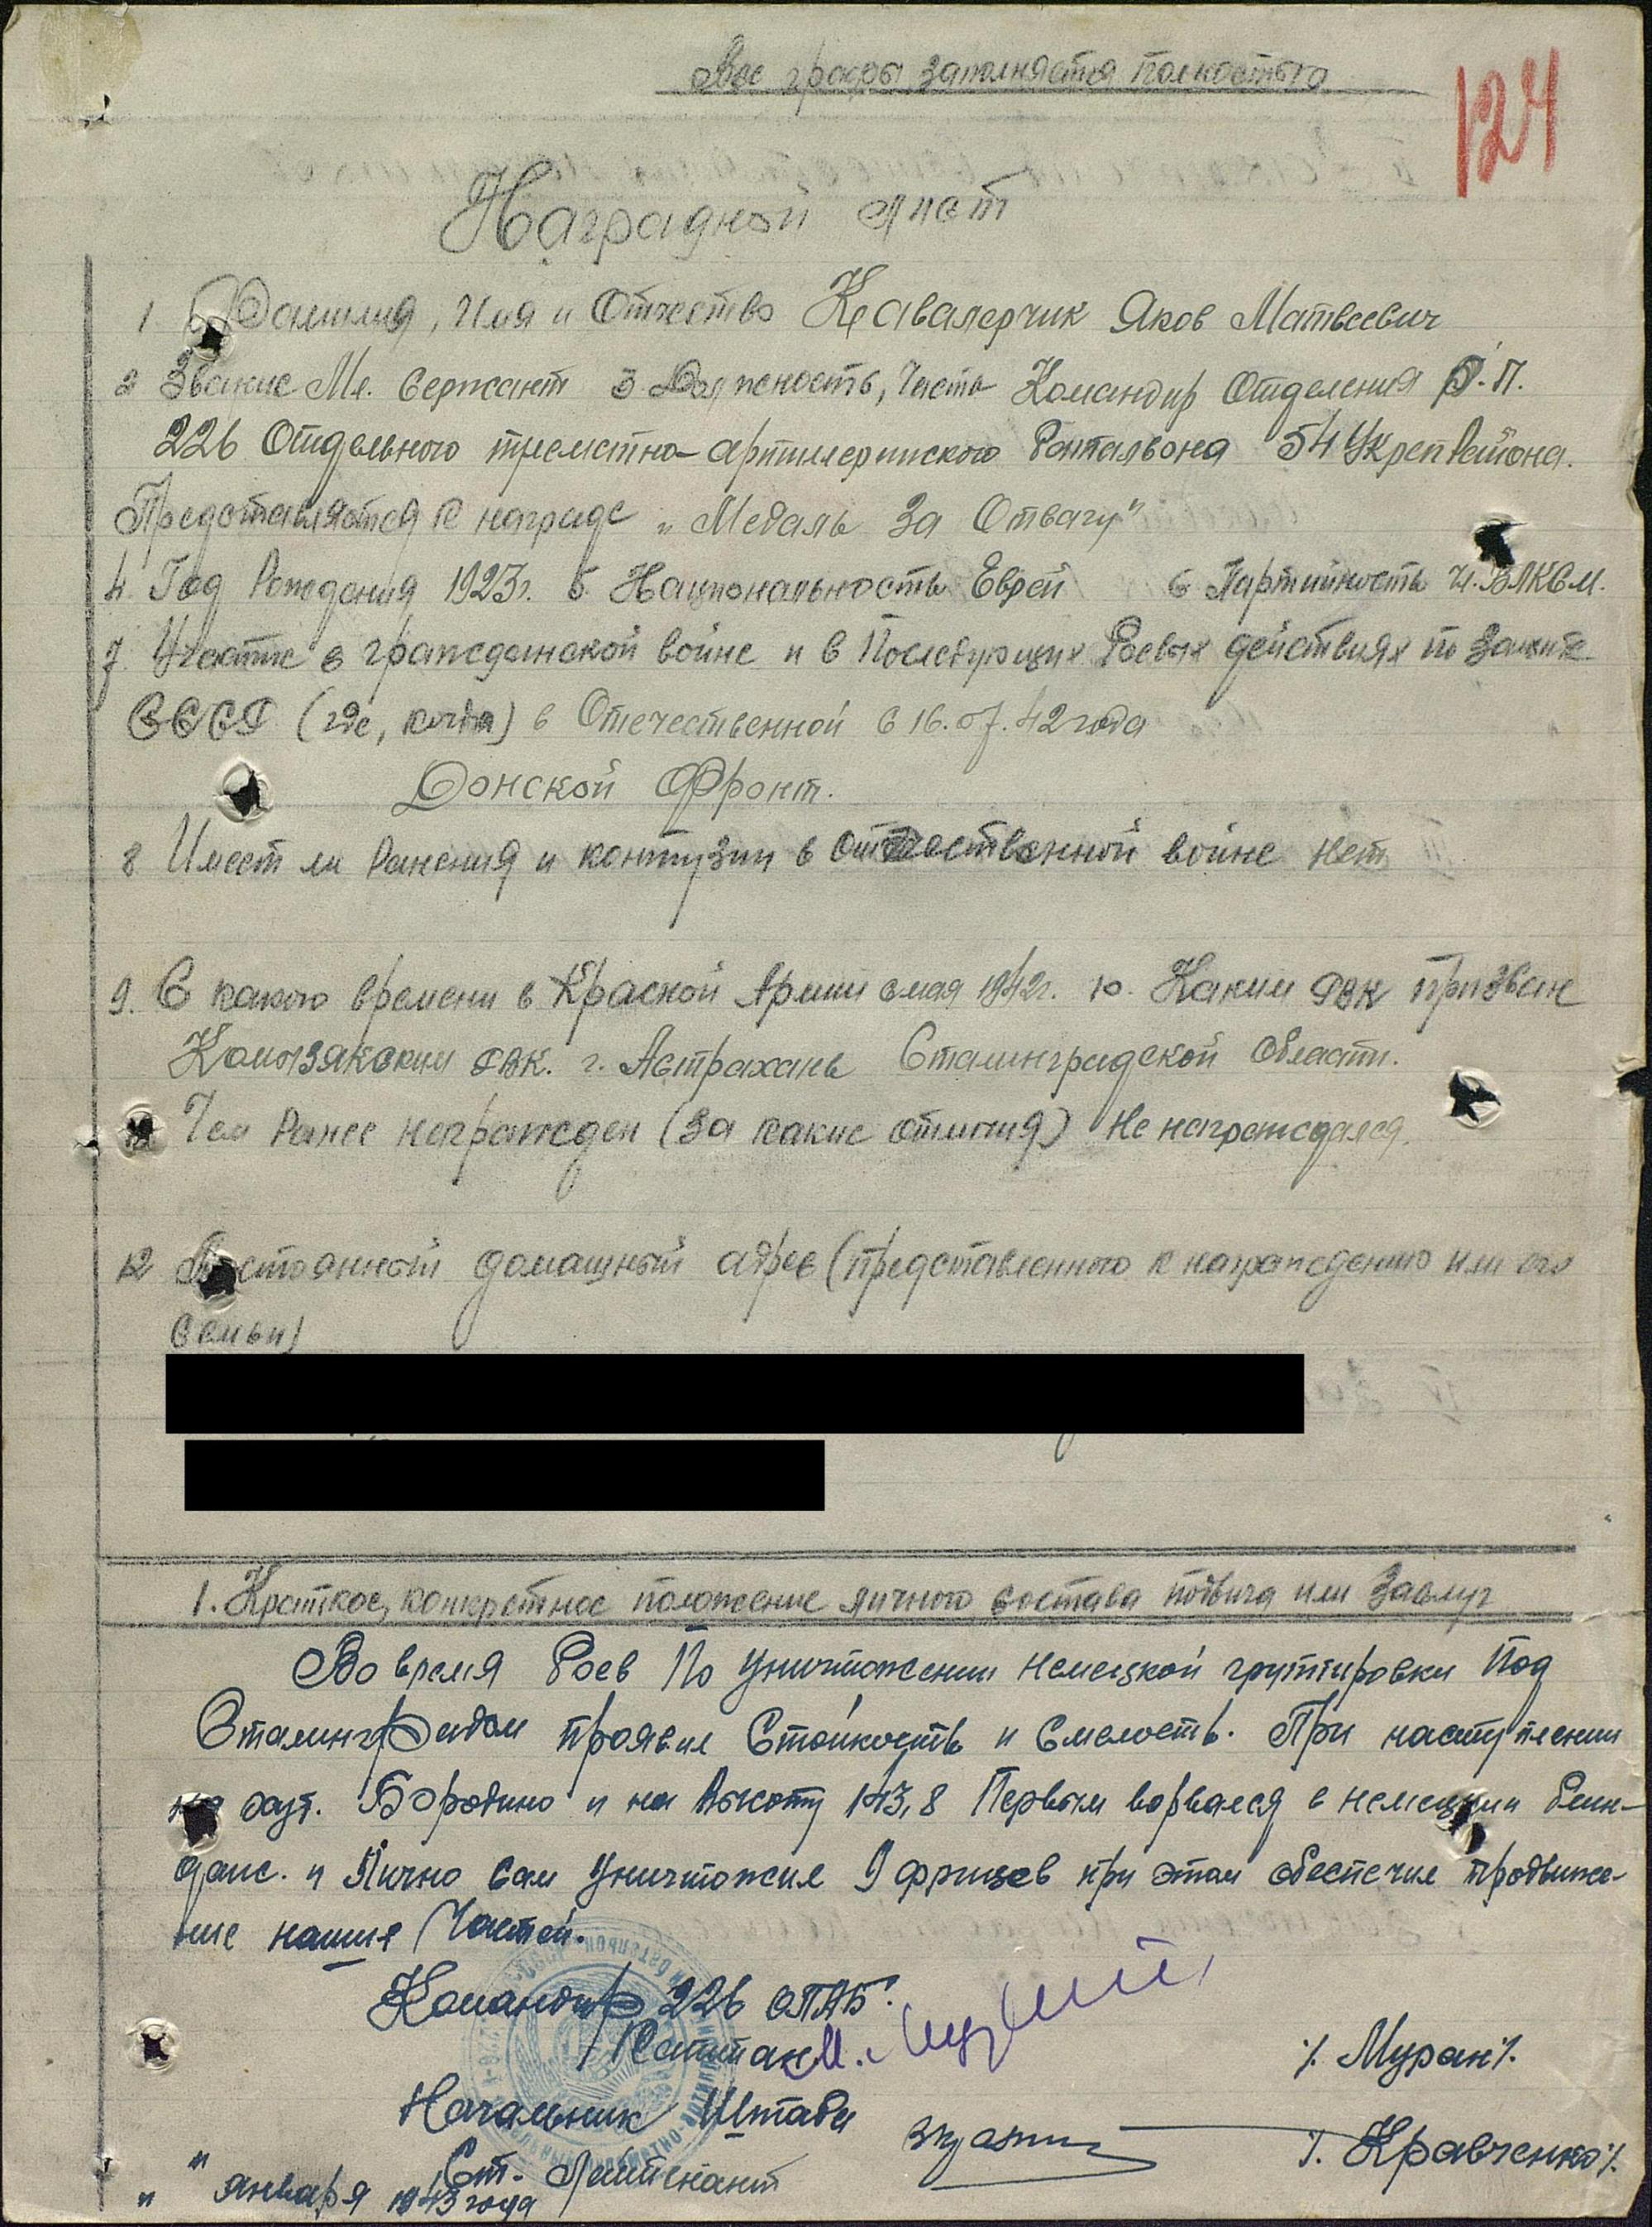 Все графы заполняются полностью
124
Наградной лист
1 Фамилия, Имя и Отчество Кавалерчик Яков Матвеевич
2 Звание Мл. Сержант 3 Должность, Часть Командир Отделения
226 Отдельного пулеметно-артиллерийского Батальона 54 УкрепРайона.
Представляется к награде „Медаль За Отвагу"
4. Год Рождения 1923г. 5. Национальность Еврей 6 Партийность Ч.ВЛКСМ.
7. Участие в гражданской войне и в Последующих Боевых действиях по защите
СССР (где, когда) в Отечественной с 16.07.42 года
Донской Фронт.
8 Имеет ли Ранения и контузии в Отечественной войне нет
9. С какого времени в Красной Армии с мая 1942г. 10. Каким РВК призван
Камызякским РВК. г. Астрахань Сталинградской области.
Чем Ранее награжден (за какие отличия) Не награждался.
12 Постоянный домашный адрес (представленного к награждению или его
семьи)
1. Краткое, конкретное положение личного состава подвига или Заслуг
Во время Боев По уничтожении немецкой группировки Под
Сталинградом проявил Стойкость и Смелость. При наступлении
на хут. Бородино и на Высоту 143,8 Первым ворвался в немецкий блин-
даж. и Лично Сам Уничтожил 9 фрицев при этом обеспечил продвиже-
ние наших Частей.
Командир 226 ОПАБ.
Капитан /. Муран /.
Начальник Штаба
Ст. Лейтенант /. Кравченко /.
" " января 1943 года